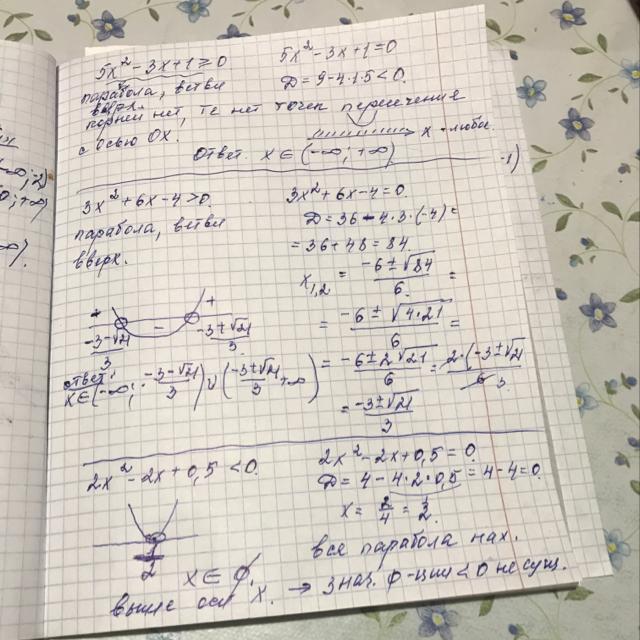 5x² - 3x + 1 ≥ 0
5x² - 3x + 1 = 0
парабола, ветви
D = 9 - 4·1·5 < 0.
вверх.
корней нет, те нет точек пересечение
с осью Ox.
x - любы.
Ответ. x ∈ (-∞; +∞)
3x² + 6x - 4 > 0.
3x² + 6x - 4 = 0.
парабола, ветви
вверх.
D = 36 - 4·3·(-4) =
= 36 + 48 = 84.
x₁,₂ = (-6 ± √84)/6 =
= (-6 ± √(4·21))/6 =
= (-6 ± 2√21)/6 = 2·(-3 ± √21)/6 3
= (-3 ± √21)/3
+ - +
(-3-√21)/3 (-3±√21)/3
ответ:
x ∈ (-∞; (-3-√21)/3) ∪ ((-3±√21)/3; +∞)
2x² - 2x + 0,5 < 0.
2x² - 2x + 0,5 = 0.
D = 4 - 4·2·0,5 = 4 - 4 = 0.
x = 2/4 = 1/2.
1/2
x ∈ ∅.
все парабола нах.
выше оси x. → знач. ф-ции < 0 не сущ.
-∞; -2)
0; +∞)
∞).
-1)